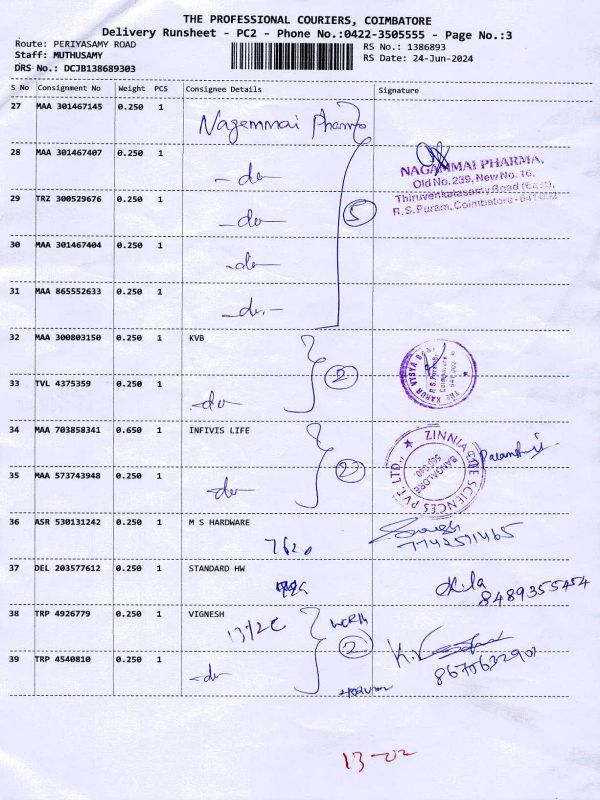 THE PROFESSIONAL COURIERS, COIMBATORE
Delivery Runsheet - PC2 - Phone No.:0422-3505555 - Page No.:3
Route: PERIYASAMY ROAD RS No.: 1386893
Staff: MUTHUSAMY RS Date: 24-Jun-2024
DRS No.: DCJB138689303
S No Consignment No Weight PCS Consignee Details Signature
27 MAA 301467145 0.250 1 Nagammai Pharma
28 MAA 301467407 0.250 1 -do-
NAGAMMAI PHARMA,
Old No. 239, New No. 16,
Thiruvenkatasamy Road (East),
R.S. Puram, Coimbatore - 641 002
29 TRZ 300529676 0.250 1 -do- 5
30 MAA 301467404 0.250 1 -do-
31 MAA 865552633 0.250 1 -do-
32 MAA 300803150 0.250 1 KVB 2
THE KARUR VYSYA BANK
R.S. Puram
Coimbatore
641 002
33 TVL 4375359 0.250 1 -do-
34 MAA 703858341 0.650 1 INFIVIS LIFE 2
ZINNIA LIFE SCIENCES PVT. LTD.,
BANGALORE
560 040
35 MAA 573743948 0.250 1 -do-
36 ASR 530131242 0.250 1 M S HARDWARE
37 DEL 203577612 0.250 1 STANDARD HW
8489355454
38 TRP 4926779 0.250 1 VIGNESH 2
39 TRP 4540810 0.250 1 -do-